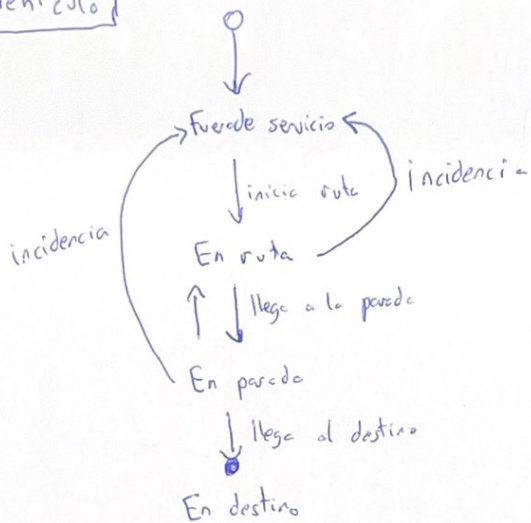 Fuera de servicio
inicia ruta
incidencia
incidencia
En ruta
llega a la parada
En parada
llega al destino
En destino